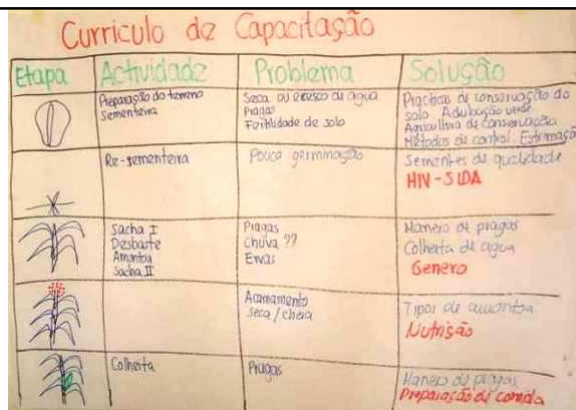 Curriculo de Capacitação
Etapa Actividade Problema Solução
Preparação do terreno
Sementeira
Seca ou excesso de agua
Pragas
Fertilidade de solo
Practicas de conservação do
solo. Adubação verde
Agricultura de conservação
Métodos de control. Estrumação
Re-sementeira
Pouca germinação
Sementes de qualidade
HIV-SIDA
Sacha I
Desbaste
Amontoa
Sacha II
Pragas
Chuva ??
Ervas
Maneio de pragas
Colheita de agua
Genero
Acamamento
Seca / cheia
Tipos de amontoa
Nutrição
Colheita
Pragas
Maneio de pragas
Preparação de comida